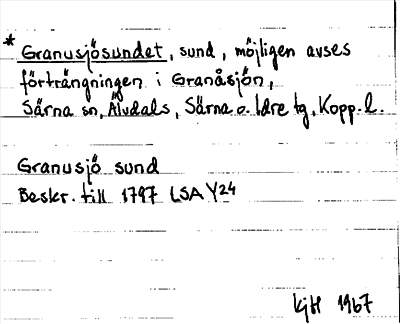 * Granusjösundet, sund, möjligen avses
förträngningen i Granåsjön,
Särna sn, Älvdals, Särna o. Idre tg, Kopp. l.
Granusjö sund
Beskr. till 1797 LSA Y24
kjH 1967